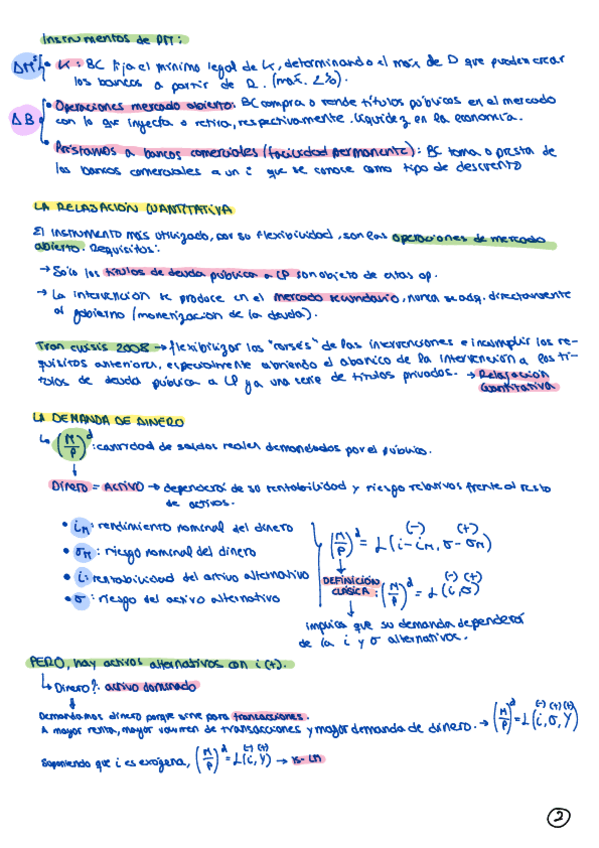 Instrumentos de PM:
ΔM^s • K: BC fija el mínimo legal de K, determinando el máx de D que pueden crear
los bancos a partir de R. (mañ. 2%).
ΔB • Operaciones mercado abierto: BC compra o vende títulos públicos en el mercado
con lo que inyecta o retira, respectivamente. liquidez en la economía.
• Préstamos a bancos comerciales (facilidad permanente): BC toma o presta de
los bancos comerciales a un i que se conoce como tipo de descuento
LA RELAJACIÓN CUANTITATIVA
El instrumento más utilizado, por su flexibilidad, son las operaciones de mercado
abierto. Requisitos:
→ Solo los títulos de deuda pública a CP son objeto de estas op.
→ La intervención se produce en el mercado secundario, nunca se adq. directamente
al gobierno (monetización de la deuda).
Tran crisis 2008 → flexibilizar los "corsés" de las intervenciones e incumplir los re-
quisitos anteriores, especialmente abriendo el abanico de la intervención a los tí-
tulos de deuda pública a CP y a una serie de títulos privados. → Relajación
cuantitativa
LA DEMANDA DE DINERO
↳ (M/P)^d : cantidad de saldos reales demandados por el público.
Dinero = Activo → dependerá de su rentabilidad y riesgo relativos frente al resto
de activos.
• i_M: rendimiento nominal del dinero
• σ_M: riesgo nominal del dinero
• i: rentabilidad del activo alternativo
• σ: riesgo del activo alternativo
(-) (+)
(M/P)^d = L(i - i_M, σ - σ_M)
(-) (+)
DEFINICIÓN CLÁSICA: (M/P)^d = L(i, σ)
implica que su demanda dependerá
de la i y σ alternativos.
PERO, hay activos alternativos con i (+).
↳ Dinero?: activo dominado
Demandamos dinero porque sirve para transacciones.
(-) (+) (+)
A mayor renta, mayor volumen de transacciones y mayor demanda de dinero. → (M/P)^d = L(i, σ, Y)
(-) (+)
Suponiendo que i es exógena, (M/P)^d = L(i, Y) → IS-LM
2